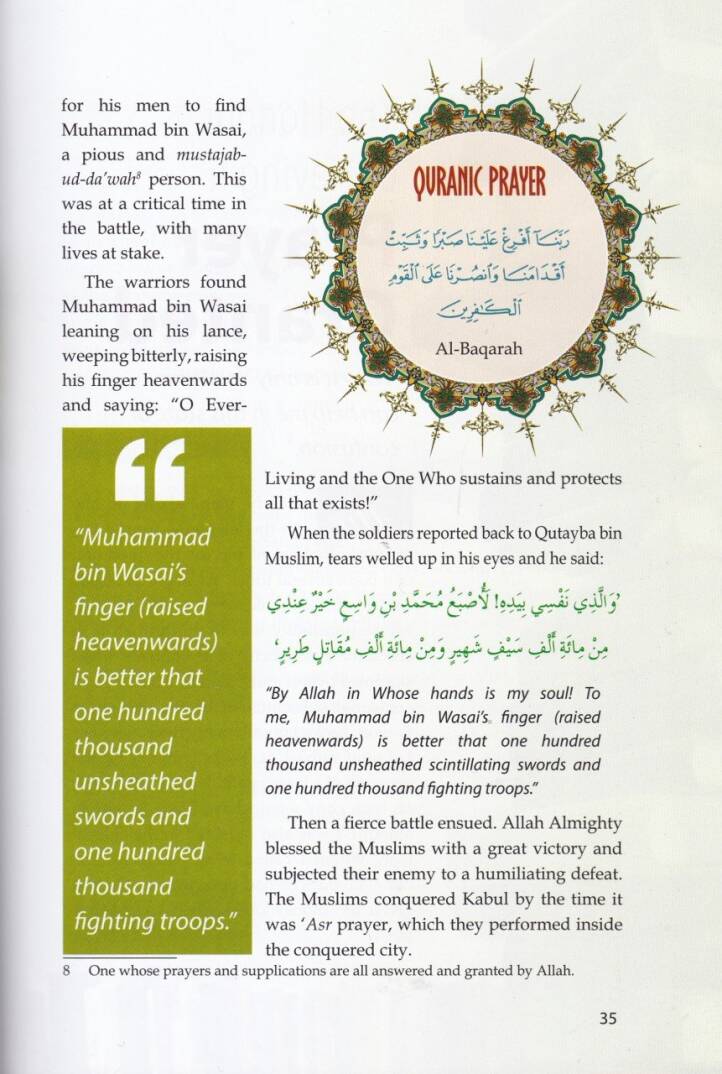 for his men to find
Muhammad bin Wasai,
a pious and mustajab-
ud-da'wah⁸ person. This
was at a critical time in
the battle, with many
lives at stake.
The warriors found
Muhammad bin Wasai
leaning on his lance,
weeping bitterly, raising
his finger heavenwards
and saying: “O Ever-
QURANIC PRAYER
رَبَّنَآ أَفْرِغْ عَلَيْنَا صَبْرًا وَثَبِّتْ
أَقْدَامَنَا وَٱنصُرْنَا عَلَى ٱلْقَوْمِ
ٱلْكَٰفِرِينَ
Al-Baqarah
Living and the One Who sustains and protects
all that exists!”
When the soldiers reported back to Qutayba bin
Muslim, tears welled up in his eyes and he said:
'وَالَّذِي نَفْسِي بِيَدِهِ! لَأُصْبَعُ مُحَمَّدِ بْنِ وَاسِعٍ خَيْرٌ عِنْدِي
مِنْ مِائَةِ أَلْفِ سَيْفٍ شَهِيرٍ وَمِنْ مِائَةِ أَلْفِ مُقَاتِلٍ طَرِيرٍ'
“By Allah in Whose hands is my soul! To
me, Muhammad bin Wasai's finger (raised
heavenwards) is better that one hundred
thousand unsheathed scintillating swords and
one hundred thousand fighting troops.”
Then a fierce battle ensued. Allah Almighty
blessed the Muslims with a great victory and
subjected their enemy to a humiliating defeat.
The Muslims conquered Kabul by the time it
was ‘Asr prayer, which they performed inside
the conquered city.
“
“Muhammad
bin Wasai's
finger (raised
heavenwards)
is better that
one hundred
thousand
unsheathed
swords and
one hundred
thousand
fighting troops.”
8 One whose prayers and supplications are all answered and granted by Allah.
35